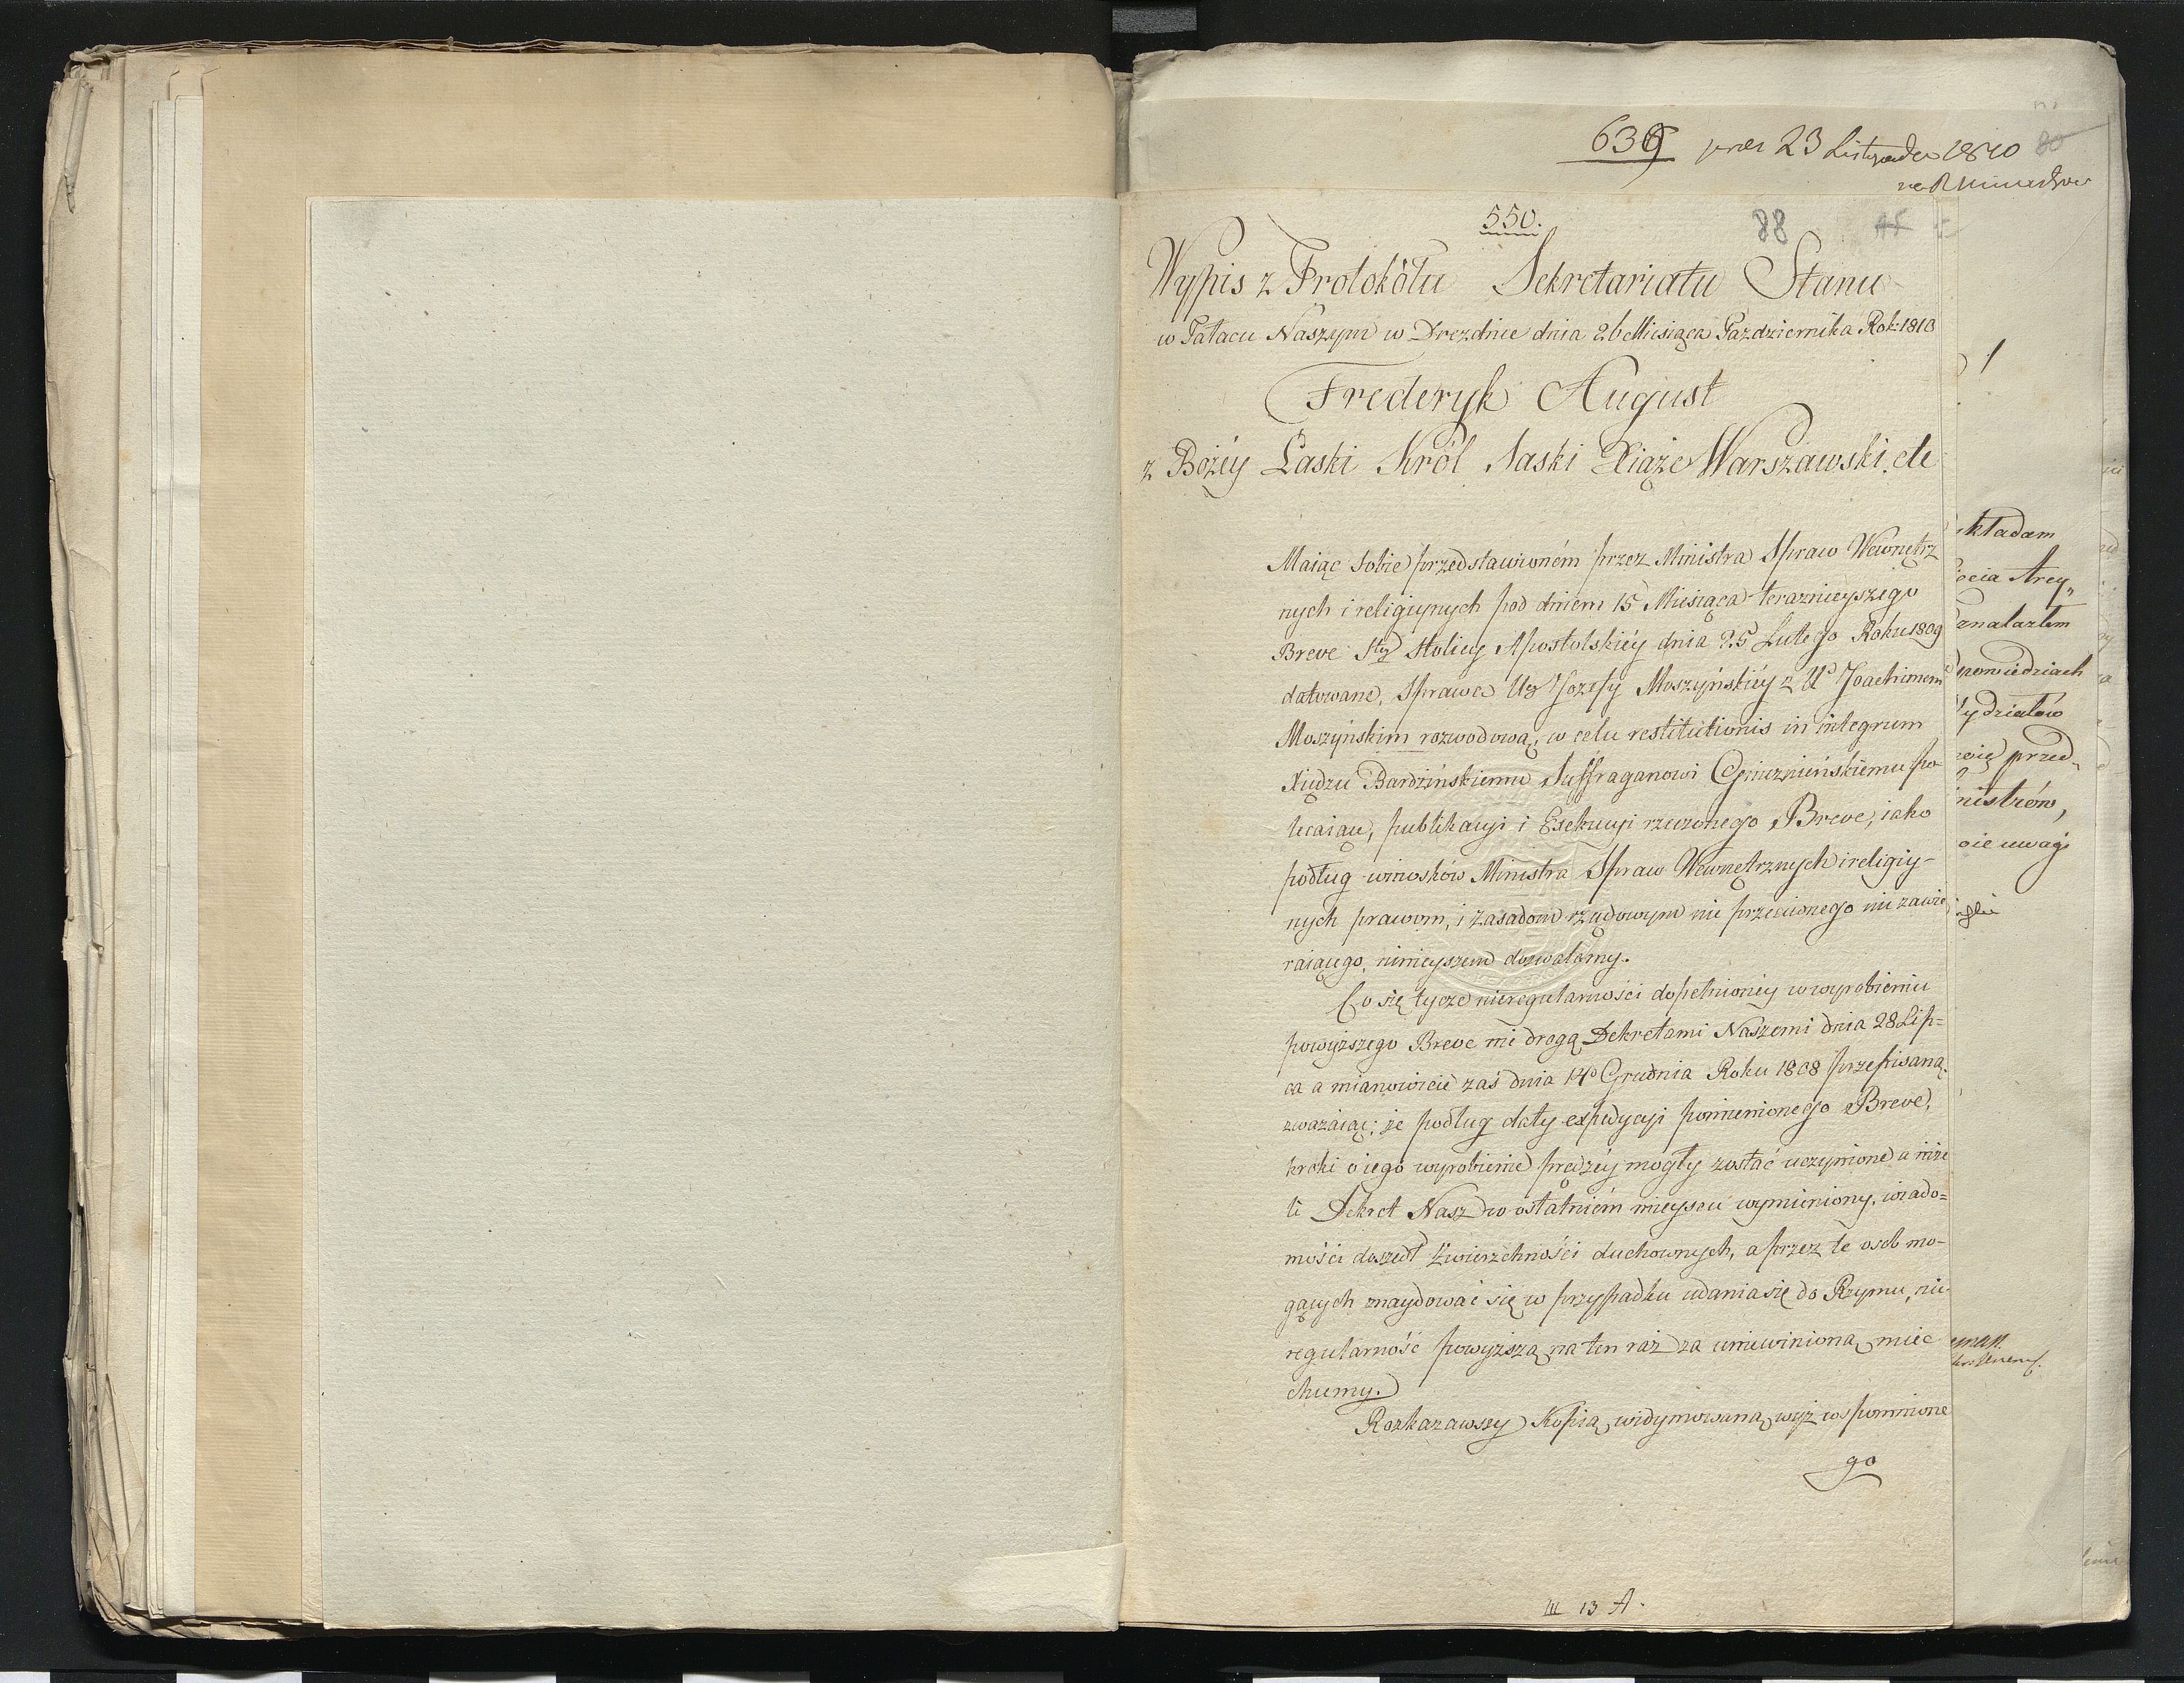 639 23 Listopada 1810 80
550. 88
Wypis z Protokółu Sekretariatu Stanu
w Pałacu Naszym w Dreznie dnia 26 Miesiąca Pazdziernika Rok: 1810
Frederyk August
z Bożéy Łaski Król Saski Xiąże Warszawski, etc
Maiąc sobie przedstawioném przez Ministra Spraw Wewnętrz
nych i religiynych pod dniem 15 Miesiąca teraznieyszego
Breve Stéy Stolicy Apostolskiéy dnia 25 Lutego Roku 1809
datowane, Sprawę Ur Jozefy Moszyńskiéy z Ur Joachimem
Moszyńskim rozwodową, w celu restitutionis in integrum
Xiędzu Bardzińskiemu Suffraganowi Gnieznieńskiemu po-
lecaiące, publikacyi i Exekucyi rzeczonego Breve, iako
podług wniosków Ministra Spraw Wewnętrznych i religiy-
nych prawom, i zasadom rządowym nic przeciwnego nie zawie
raiącego, ninieyszem dozwalamy.
Co się tycze nieregularności dopełnionéy w wyrobieniu
powyższego Breve nie drogą Dekretami Naszemi dnia 28 Lip=
ca a mianowicie zaś dnia 14o Grudnia Roku 1808 przepisaną,
zważaiąc; że podług daty expedycyi pomienionego Breve,
kroki o iego wyrobienie prędzéy mogły zostać uczynione a niże
li Dekret Nasz w ostatniém mieyscu wymieniony, wiado=
mości doszedł Zwierzchności duchownych, a przez te osob mo-
gących znaydować się w przypadku udania się do Rzymu, nie
regularność powyższą na ten raz za uniewinioną mieć
chcemy.
Rozkazawszy Kopią widymowaną wyż wspomnione
go
III 13 A.
kładam
ięcia Arcy„
znalazłem
powiedziach
ydziałów
wię przed„
nistrów,
oie uwagi